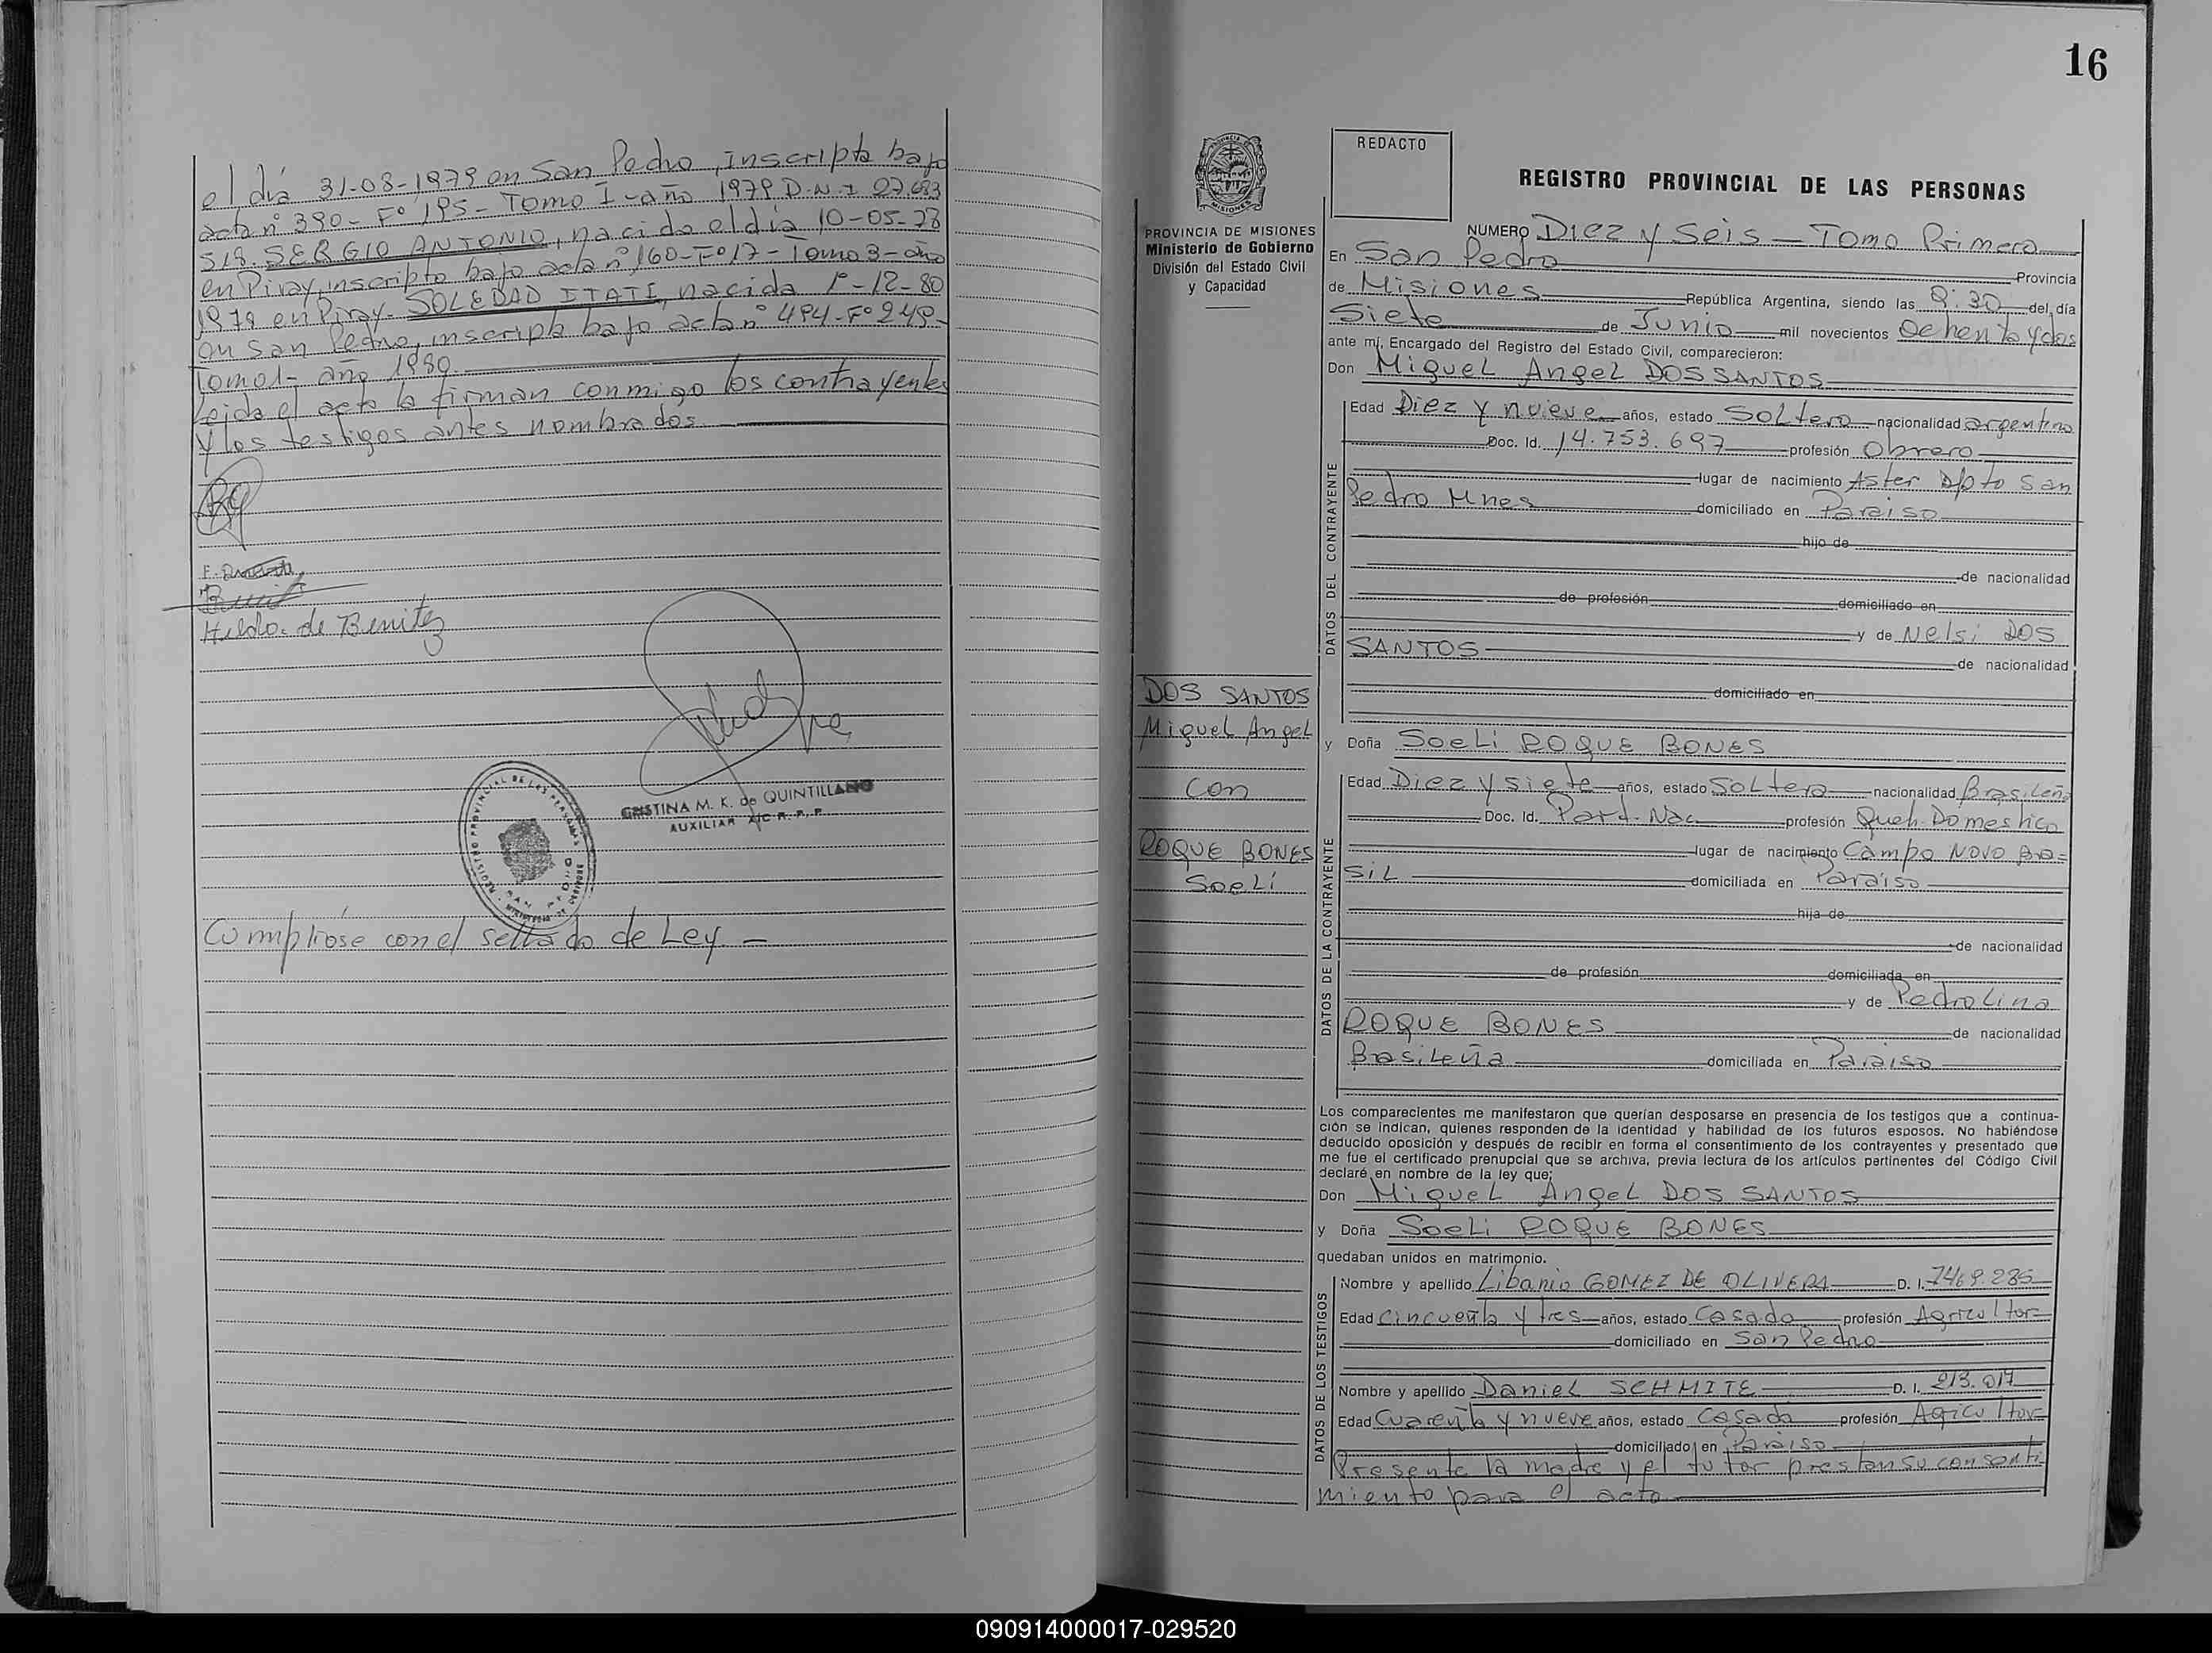 el día 31-08-1979 en San Pedro, inscripta bajo
acta nº 390- Fº 195- Tomo I - año 1979 D.N.I 27.683
518. SERGIO ANTONIO, nacido el día 10-05-78
en Piray, inscripto bajo acta nº 160- Fº 17- Tomo 3- año
1979 en Piray. SOLEDAD ITATI, nacida 1º-12-80
en San Pedro, inscripta bajo acta nº 494- Fº 249-
Tomo 1- año 1980.
Leida el acta la firman conmigo los contrayentes
y los testigos antes nombrados.
Hilda. de Benitez
CRISTINA M. K. de QUINTILLANO
AUXILIAR A/C R. P. P.
REGISTRO PROVINCIAL DE LAS PERSONAS
SAN PEDRO
Cumpliose con el sellado de Ley. -
16
REDACTO
REGISTRO PROVINCIAL DE LAS PERSONAS
MISIONES
PROVINCIA DE MISIONES
Ministerio de Gobierno
División del Estado Civil
y Capacidad
DOS SANTOS
Miguel Angel
Con
ROQUE BONES
Soeli
NUMERO Diez y Seis - Tomo Primero
En San Pedro Provincia
de Misiones República Argentina, siendo las 9:30 del día
Siete de Junio mil novecientos Ochenta y dos
ante mí, Encargado del Registro del Estado Civil, comparecieron:
Don Miguel Angel DOS SANTOS
DATOS DEL CONTRAYENTE
Edad Diez y nueve años, estado Soltero nacionalidad argentina
Doc. Id. 14.753.697 profesión Obrero
lugar de nacimiento Aster Dpto San
Pedro Mnes domiciliado en Paraiso
hijo de
de nacionalidad
de profesión domiciliado en
y de Nelsi DOS
SANTOS de nacionalidad
domiciliado en
y Doña Soeli ROQUE BONES
DATOS DE LA CONTRAYENTE
Edad Diez y siete años, estado Soltera nacionalidad Brasileña
Doc. Id. Part. Nac. profesión Queh. Domestico
lugar de nacimiento Campo NOVO Bra=
sil domiciliada en Paraiso
hija de
de nacionalidad
de profesión domiciliada en
y de Pedrolina
ROQUE BONES de nacionalidad
Brasileña domiciliada en Paraiso
Los comparecientes me manifestaron que querían desposarse en presencia de los testigos que a continua-
ción se indican, quienes responden de la identidad y habilidad de los futuros esposos. No habiéndose
deducido oposición y después de recibir en forma el consentimiento de los contrayentes y presentado que
me fue el certificado prenupcial que se archiva, previa lectura de los artículos pertinentes del Código Civil
declaré en nombre de la ley que:
Don Miguel Angel DOS SANTOS
y Doña Soeli ROQUE BONES
quedaban unidos en matrimonio.
DATOS DE LOS TESTIGOS
Nombre y apellido Libanio GOMEZ DE OLIVERA D. I. 7469.285
Edad Cincuenta y tres años, estado Casado profesión Agricultor
domiciliado en San Pedro
Nombre y apellido Daniel SCHMITE D. I. 213.017
Edad Cuarenta y nueve años, estado Casado profesión Agricultor
domiciliado en Paraiso
Presente la madre y el tutor prestan su consenti
miento para el acto
090914000017-029520